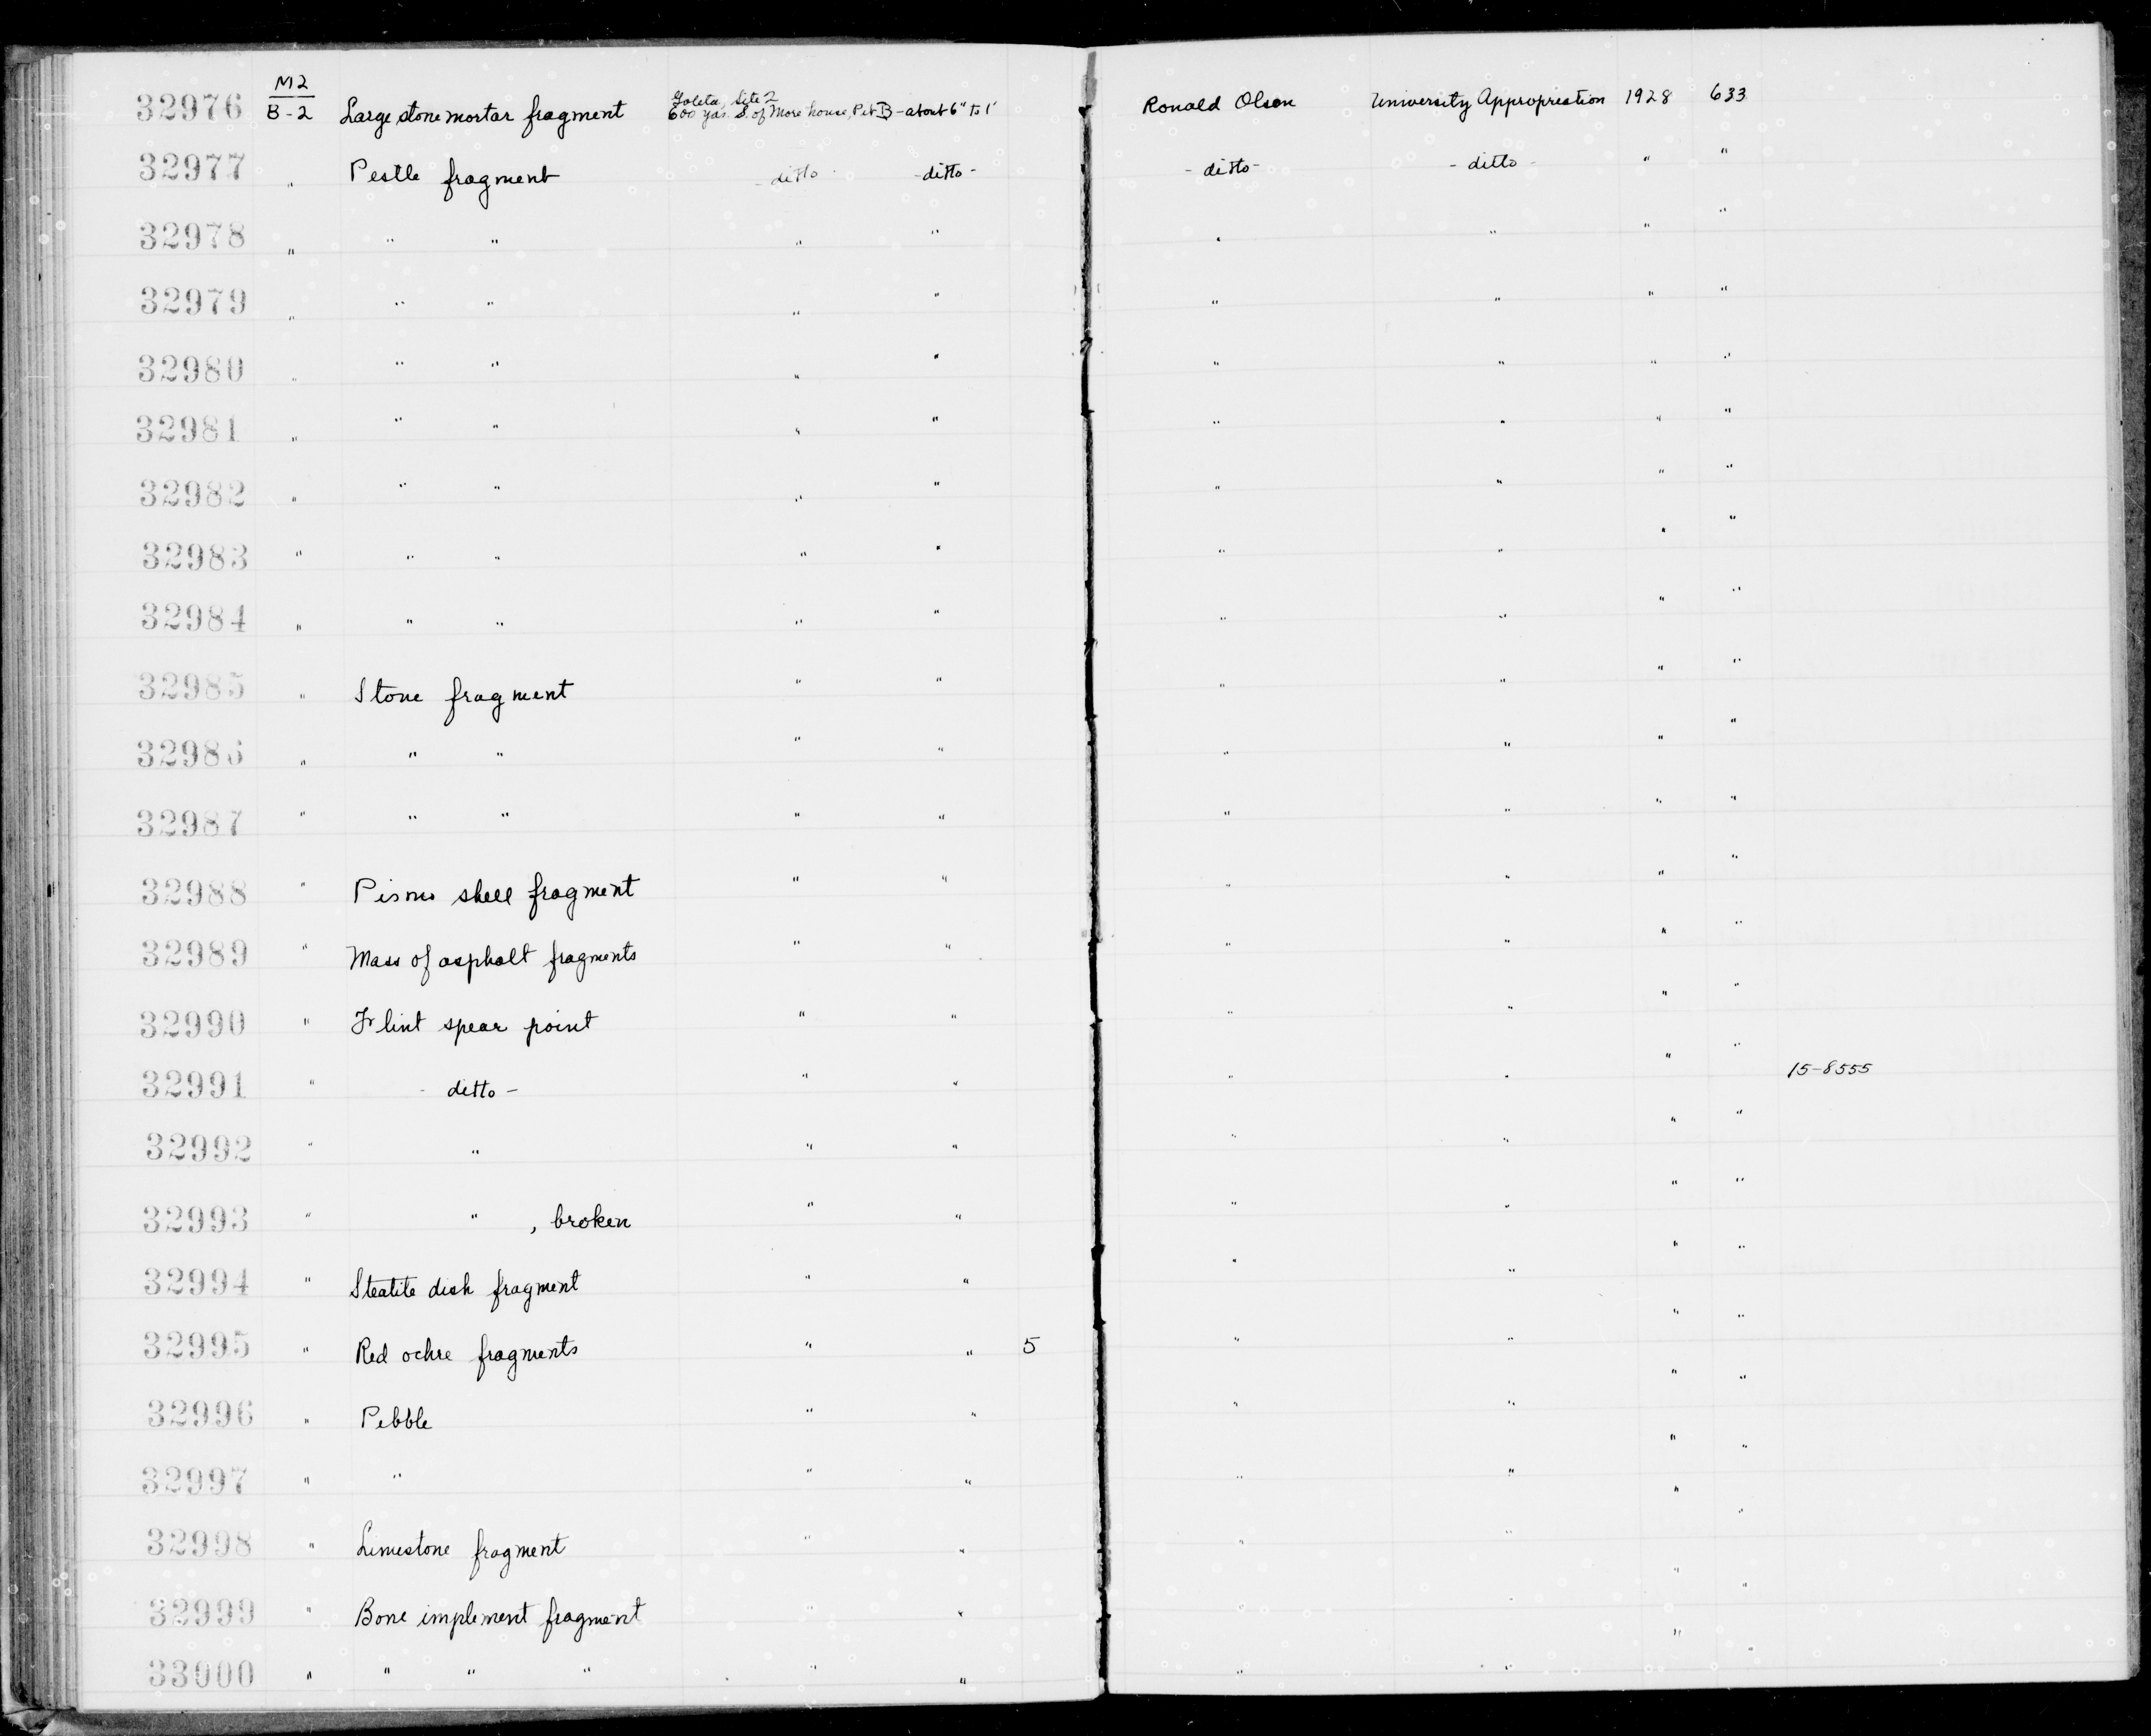 M2
32976 B-2 Large stone mortar fragment Goleta, Site 2
600 yds. S. of More house, Pit B - about 6" to 1' Ronald Olson University Appropriation 1928 633
32977 " Pestle fragment - ditto - - ditto - - ditto - - ditto - " "
32978 " " " " " " " " "
32979 " " " " " " " " "
32980 " " " " " " " " "
32981 " " " " " " " " "
32982 " " " " " " " " "
32983 " " " " " " " " "
32984 " " " " " " " " "
32985 " Stone fragment " " " " " "
32986 " " " " " " " " "
32987 " " " " " " " " "
32988 " Pismo shell fragment " " " " " "
32989 " Mass of asphalt fragments " " " " " "
32990 " Flint spear point " " " " " "
32991 " - ditto - " " " " " " 15-8555
32992 " " " " " " " "
32993 " " , broken " " " " " "
32994 " Steatite dish fragment " " " " " "
32995 " Red ochre fragments " " 5 " " " "
32996 " Pebble " " " " " "
32997 " " " " " " " "
32998 " Limestone fragment " " " " " "
32999 " Bone implement fragment " " " " " "
33000 " " " " " " " " " "